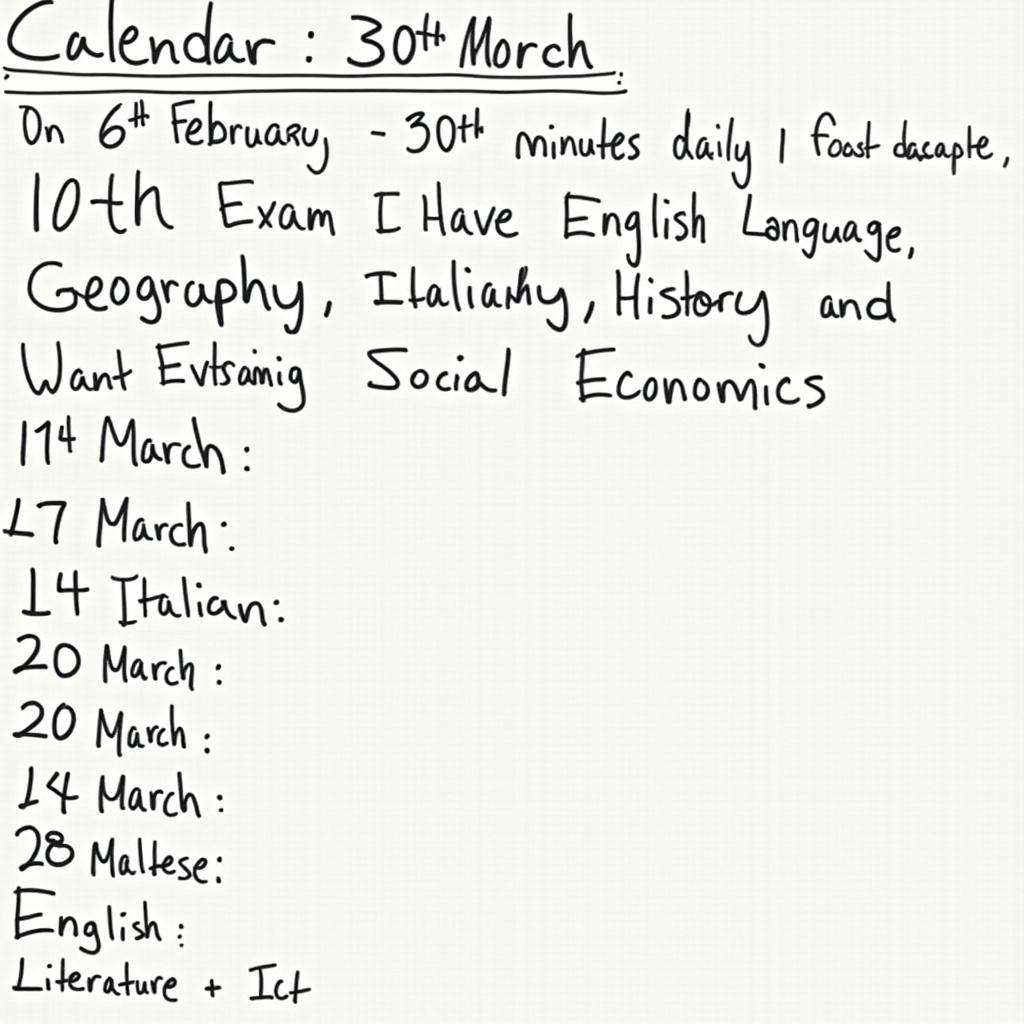 Calendar : 30th Morch
On 6th February, - 30th minutes daily 1 foast dacapte,
10th Exam I Have English Language,
Geography, Italiahy, History and
Want Evtsainig Social Economics
114 March:
17 March:
14 Italian:
20 March:
20 March:
14 March:
28 Maltese:
English:
Literature + Ict